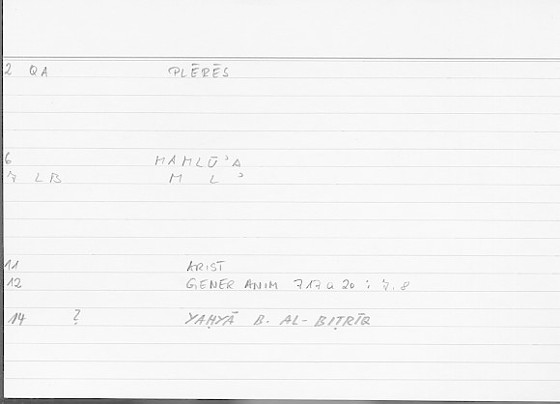 2 QA PLĒRĒS
6 MAMLŪʾA
7 LB M L ʾ
11 ARIST
12 GENER ANIM 717 a 20 : 7.8
14 ? YAḤYĀ B. AL-BIṬRĪQ